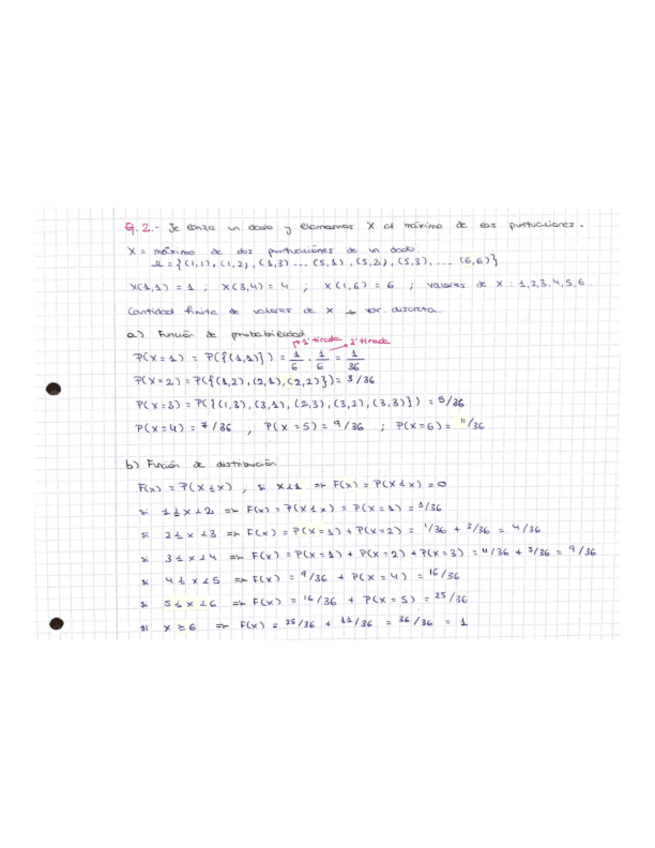 Ej. 2.- Se lanza un dado y llamamos X al máximo de las puntuaciones.
X = máximo de dos puntuaciones de un dado.
Ω = {(1,1), (1,2), (1,3) ... (5,1), (5,2), (5,3), ... (6,6)}
X(1,1) = 1 ; X(3,4) = 4 ; X(1,6) = 6 ; valores de X : 1,2,3,4,5,6.
Cantidad finita de valores de X → var. discreta.
a) Función de probabilidad
1ª tirada 2ª tirada
P(X=1) = P({(1,1)}) = 1/6 · 1/6 = 1/36
P(X=2) = P({(1,2), (2,1), (2,2)}) = 3/36
P(X=3) = P({(1,3), (3,1), (2,3), (3,2), (3,3)}) = 5/36
P(X=4) = 7/36 , P(X=5) = 9/36 ; P(X=6) = 11/36
b) Función de distribución
F(x) = P(X≤x) , si x<1 ⇒ F(x) = P(X≤x) = 0
si 1≤x<2 ⇒ F(x) = P(X≤x) = P(X=1) = 1/36
si 2≤x<3 ⇒ F(x) = P(X=1) + P(X=2) = 1/36 + 3/36 = 4/36
si 3≤x<4 ⇒ F(x) = P(X=1) + P(X=2) + P(X=3) = 4/36 + 5/36 = 9/36
si 4≤x<5 ⇒ F(x) = 9/36 + P(X=4) = 16/36
si 5≤x<6 ⇒ F(x) = 16/36 + P(X=5) = 25/36
si x≥6 ⇒ F(x) = 25/36 + 11/36 = 36/36 = 1